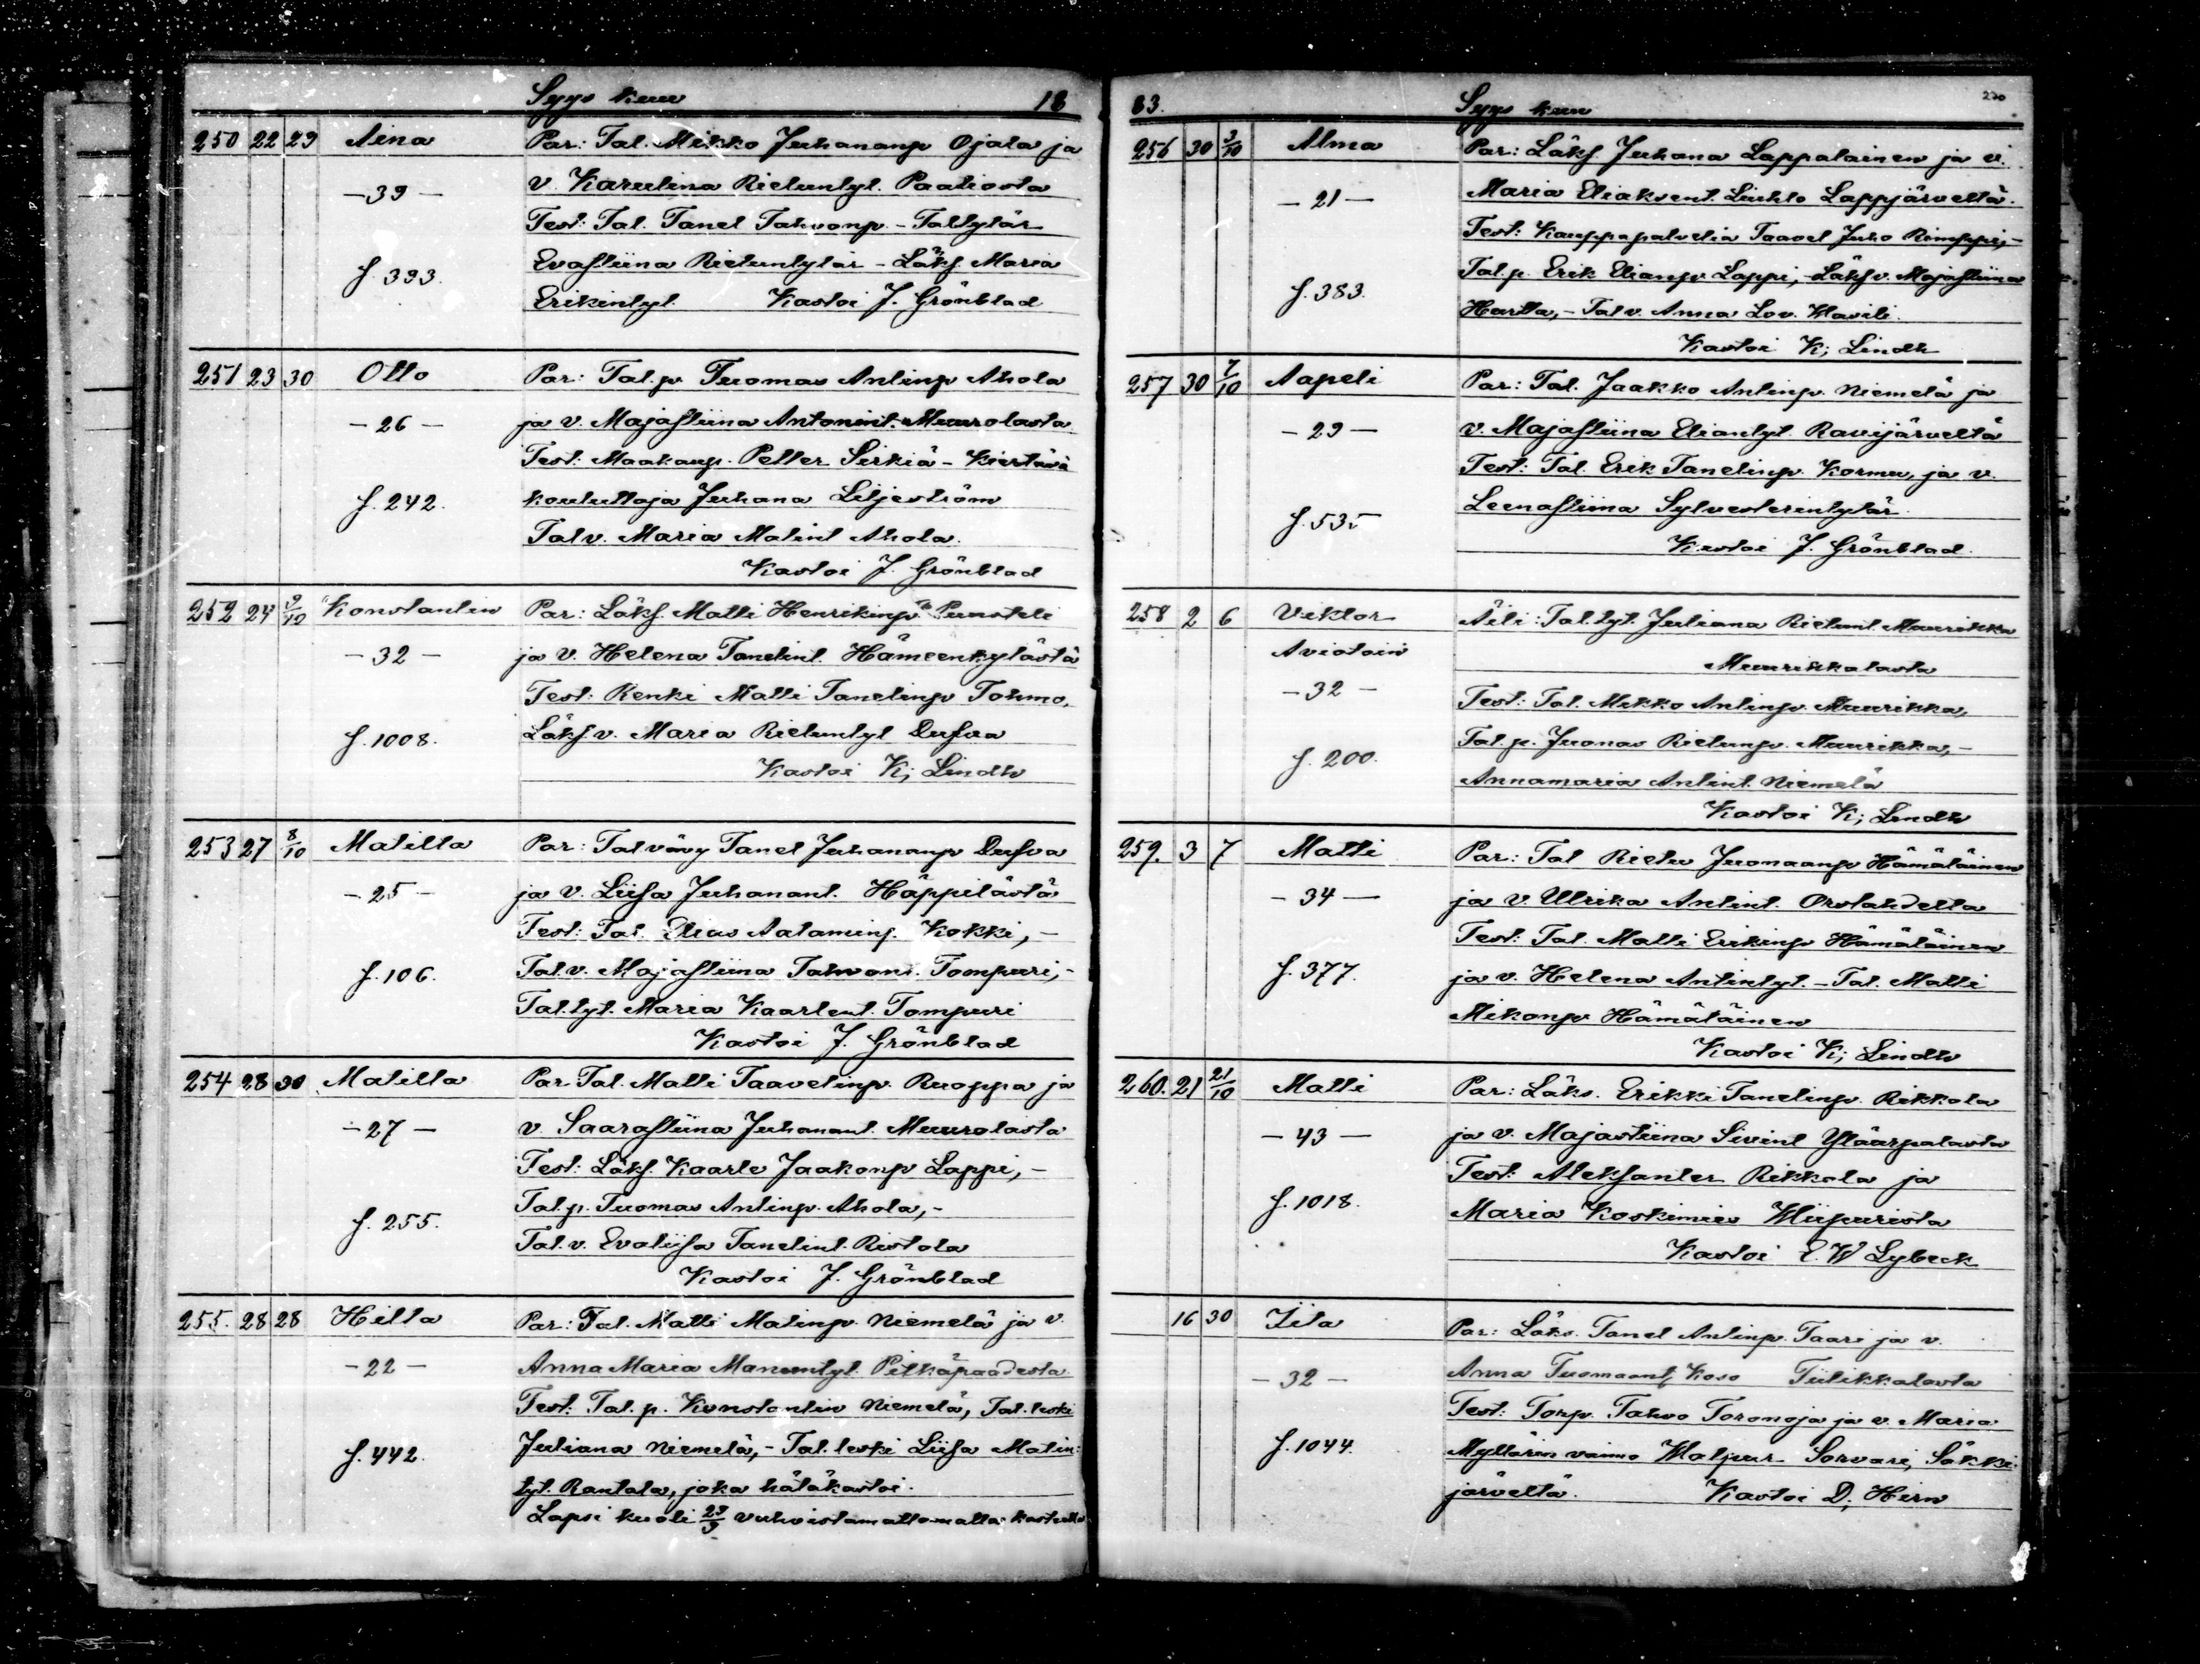 Syys kuu 18
250 22 29 Aina Par: Tal. Mikko Juhananp Ojala ja
- 39 - v. Karulina Rietuntyt. Paatiosta
Test: Tal. Tanel Tahvonp. - Taltytär
f. 393. Evastiina Rietuntytär - Läksf. Maria
Erikintyt. Kastoi J. Grönblad
251 23 30 Otto Par: Tal.p Tuomas Antinp Ahola
- 26 - ja v. Majastiina Antonint. Muurolasta
Test: Maakaup. Petter Sirkiä - Kiertävä
f. 242. kouluttaja Juhana Liljeström
Talv. Maria Matint Ahola.
Kastoi J. Grönblad
252 24 9/10 Konstantin Par: Läksf. Matti Henrikinp
- 32 - ja v. Helena Tanelint. Hämeenkylästä
Test: Renki Matti Tanelinp Tohmo,
f. 1008. Läksf v. Maria Rietuntyt Dufva
Kastoi K; Lindh
253 27 8/10 Matilta Par: Talvävy Tanel Juhananp Dufva
- 25 - ja v. Liisa Juhanant. Häppilästä
Test: Tal. Elias Aataminp. Kokki, -
f. 106. Tal.v. Majastiina Tahvont. Tompuri, -
Tal.tyt. Maria Kaarlent. Tompuri
Kastoi J. Grönblad
254 28 30 Matilta Par Tal. Matti Taavetinp. Ruoppa ja
- 27 - v. Saarastiina Juhanant. Muurolasta
Test: Läksf. Kaarle Jaakonp Lappi, -
f. 255. Tal.p. Tuomas Antinp. Ahola, -
Tal.v. Evaliisa Tanelint. Ristola
Kastoi J. Grönblad
255. 28 28 Hilta Par: Tal. Matti Matinp. Niemelä ja v.
- 22 - Anna Maria Manuntyt. Pitkäpaadesta
Test: Tal. p. Konstantin Niemelä, Tal. leski
f. 442. Juliana Niemelä, - Tal. leski Liisa Matin:
tyt. Rantala, joka hätäkastoi.
Lapsi kuoli 29/9 vahvistamattomalla kasteella
83. Syys kuu 220
256 30 3/10 Alma Par: Läksf. Juhana Lappalainen ja v.
- 21 - Maria Eliaksent. Liuhto Lappjärveltä.
Test: Kauppapalvelia Taavel Juho
f. 383. Tal.p. Erik Elianp. Lappi, - Läksf v. Majastiina
Harlla, - Tal v. Anna Lov. Wasili.
Kastoi K; Lindh
257 30 7/10 Aapeli Par: Tal. Jaakko Antinp. Niemelä ja
- 29 - v. Majastiina Eliantyt. Ravijärveltä
Test: Tal. Erik Tanelinp. Kormu, ja v.
f. 535 Leenastiina Sylvesterintytär.
Kastoi J. Grönblad.
258 2 6 Viktor Äiti: Tal.tyt. Juliana Rietunt. Muurikka
Aviotoin Muurikkalasta
- 32 - Test: Tal. Mikko Antinp. Muurikka,
f. 200. Tal.p. Juonas Rietunp. Muurikka, -
Annamaria Antint. Niemelä
Kastoi K; Lindh
259. 3 7 Matti Par: Tal Rietu Juonaanp Hämäläinen
- 34 - ja v. Ulrika Antint. Orslahdelta
Test: Tal. Matti Erikinp Hämäläinen
f. 377. ja v. Helena Antintyt. - Tal. Matti
Mikonp Hämäläinen
Kastoi K; Lindh
260. 21 21/10 Matti Par: Läks. Erikki Tanelinp. Rikkola
- 43 - ja v. Majastiina Sivint Yläärpalasta
Test: Aleksanter Rikkola ja
f. 1018. Maria Koskimies Wiipurista
Kastoi E. W Lybeck
16 30 Iita Par: Läks. Tanel Antinp. Taari ja v.
- 32 - Anna Tuomaant. Koso Tiilikkalasta
Test: Torp. Tahvo Toronoja ja v. Maria
f. 1044. Myllärin vaimo Walpur Sorvari, Säkki-
järveltä. Kastoi D. Hirn